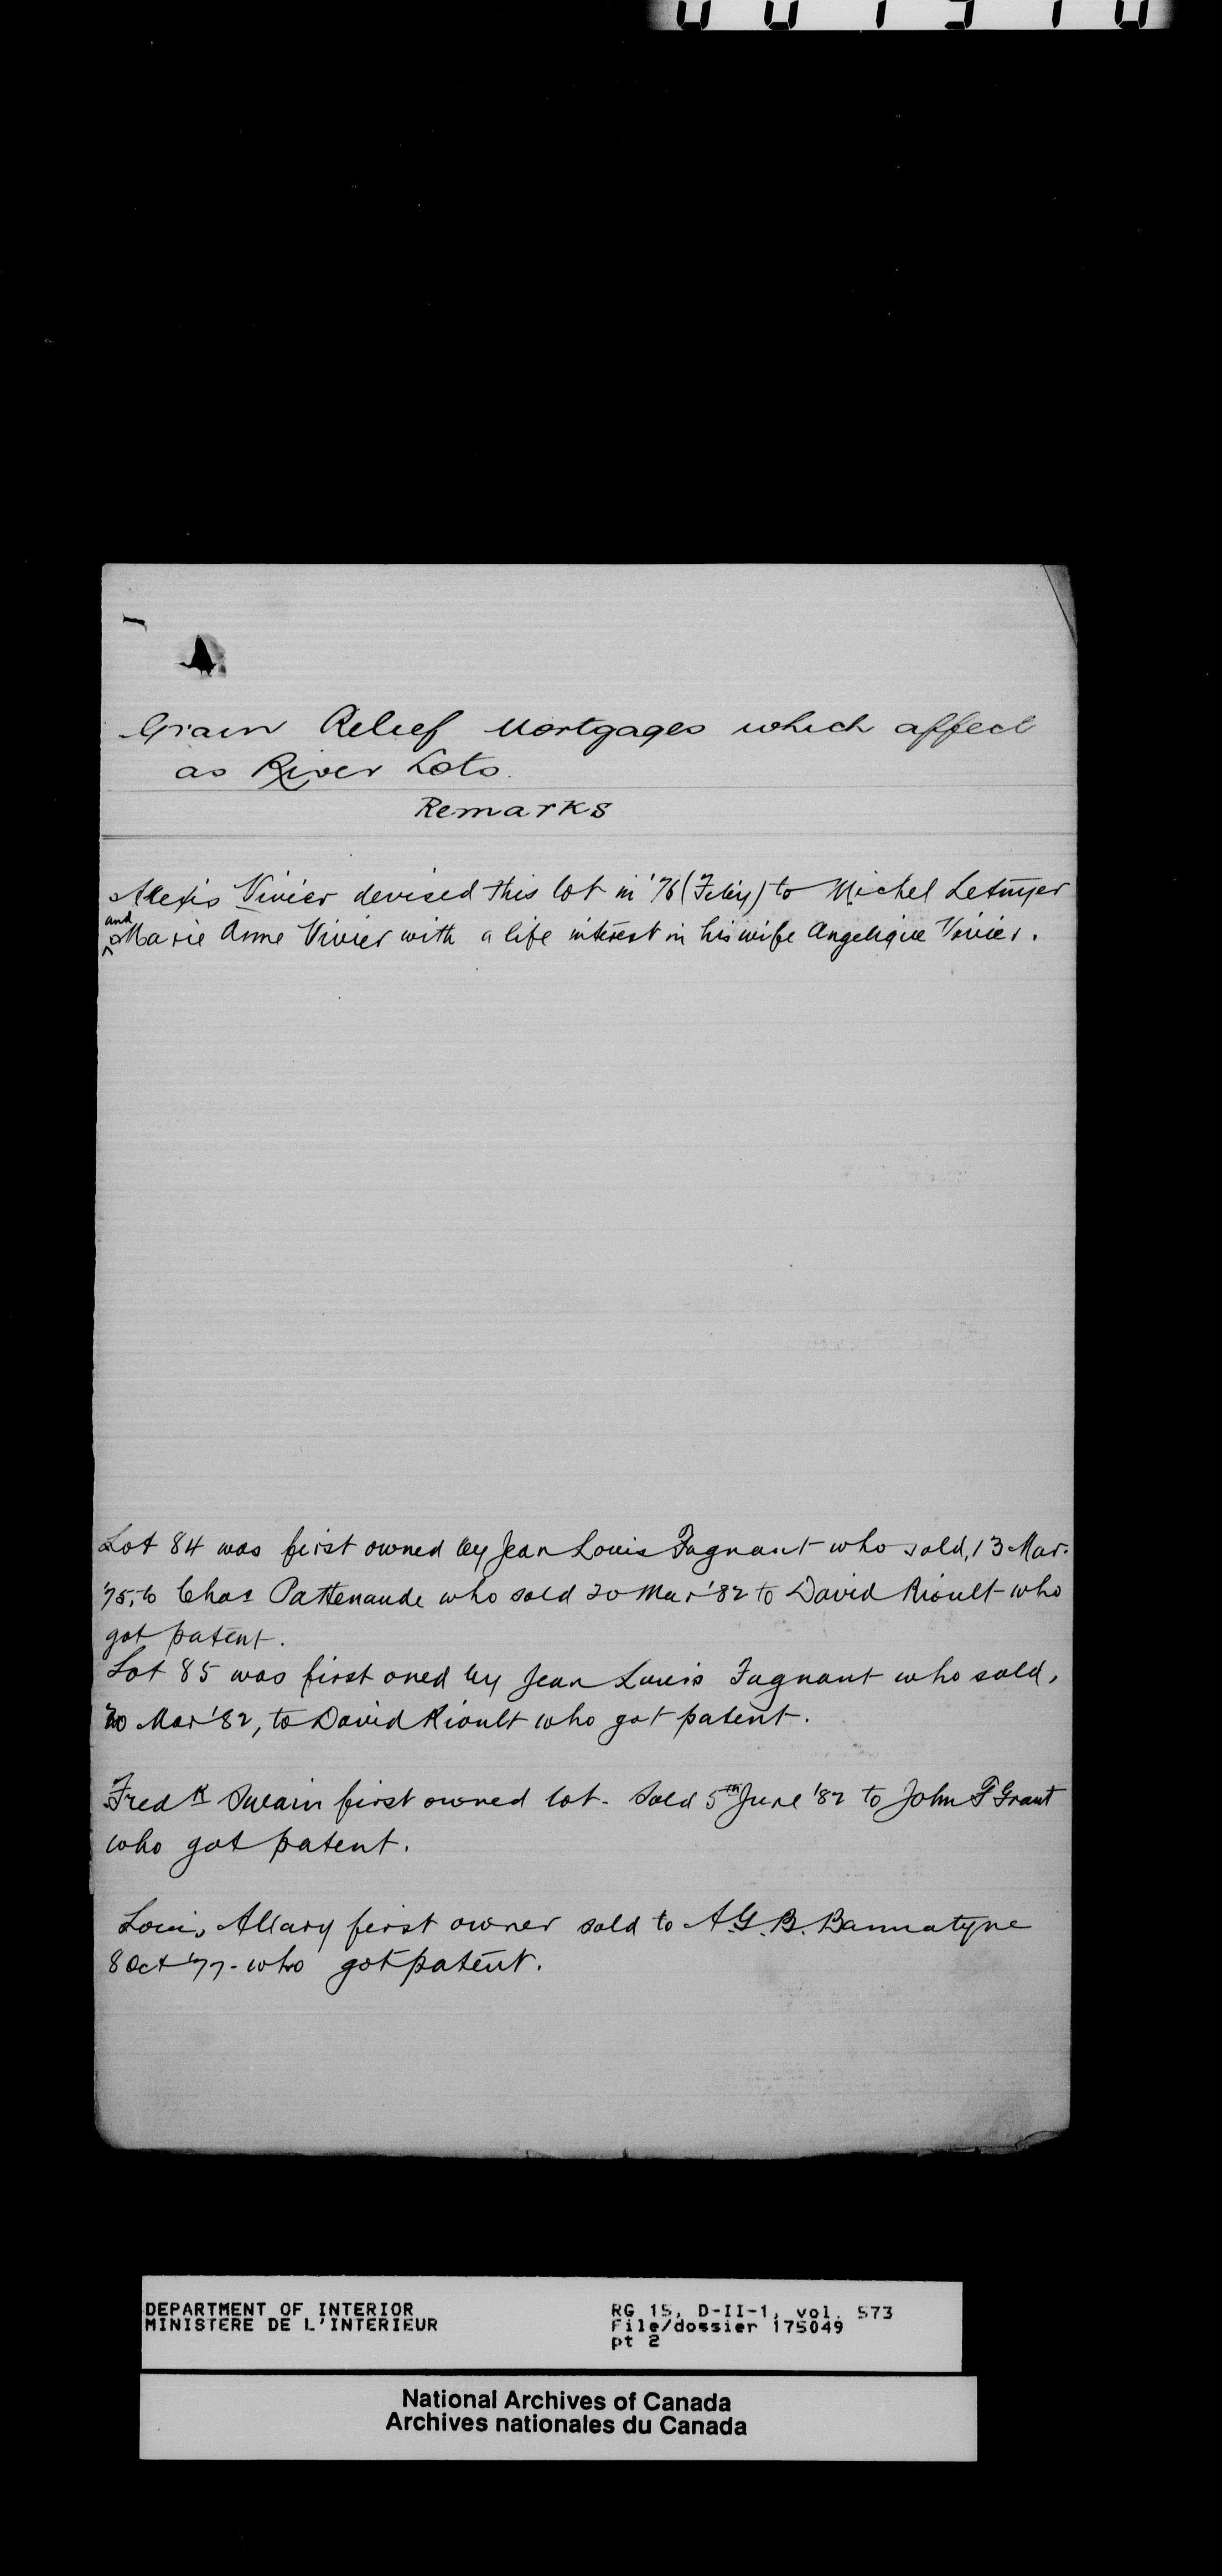 Grain Relief Mortgages which affect
as River Lots.
Remarks
Alexis Vivier devised this lot in '76 (Feby) to Michel
and
Marie Anne Vivier with a life interest in his wife Angelique Vivier.
Lot 84 was first owned by Jean Louis Fagnant who sold, 13 Mar.
'75, to Chas Pattenaude who sold 20 Mar '82 to David Rioult who
got patent.
Lot 85 was first oned by Jean Louis Fagnant who sold,
20 Mar '82, to David Rioult who got patent.
Fredk Swain first owned lot. Sold 5th June '82 to John F Grant
who got patent.
Louis Allary first owner sold to A.G.B. Bannatyne
8 Oct '77 - who got patent.
DEPARTMENT OF INTERIOR RG 15, D-II-1, vol. 573
MINISTERE DE L'INTERIEUR File/dossier 175049
pt 2
National Archives of Canada
Archives nationales du Canada